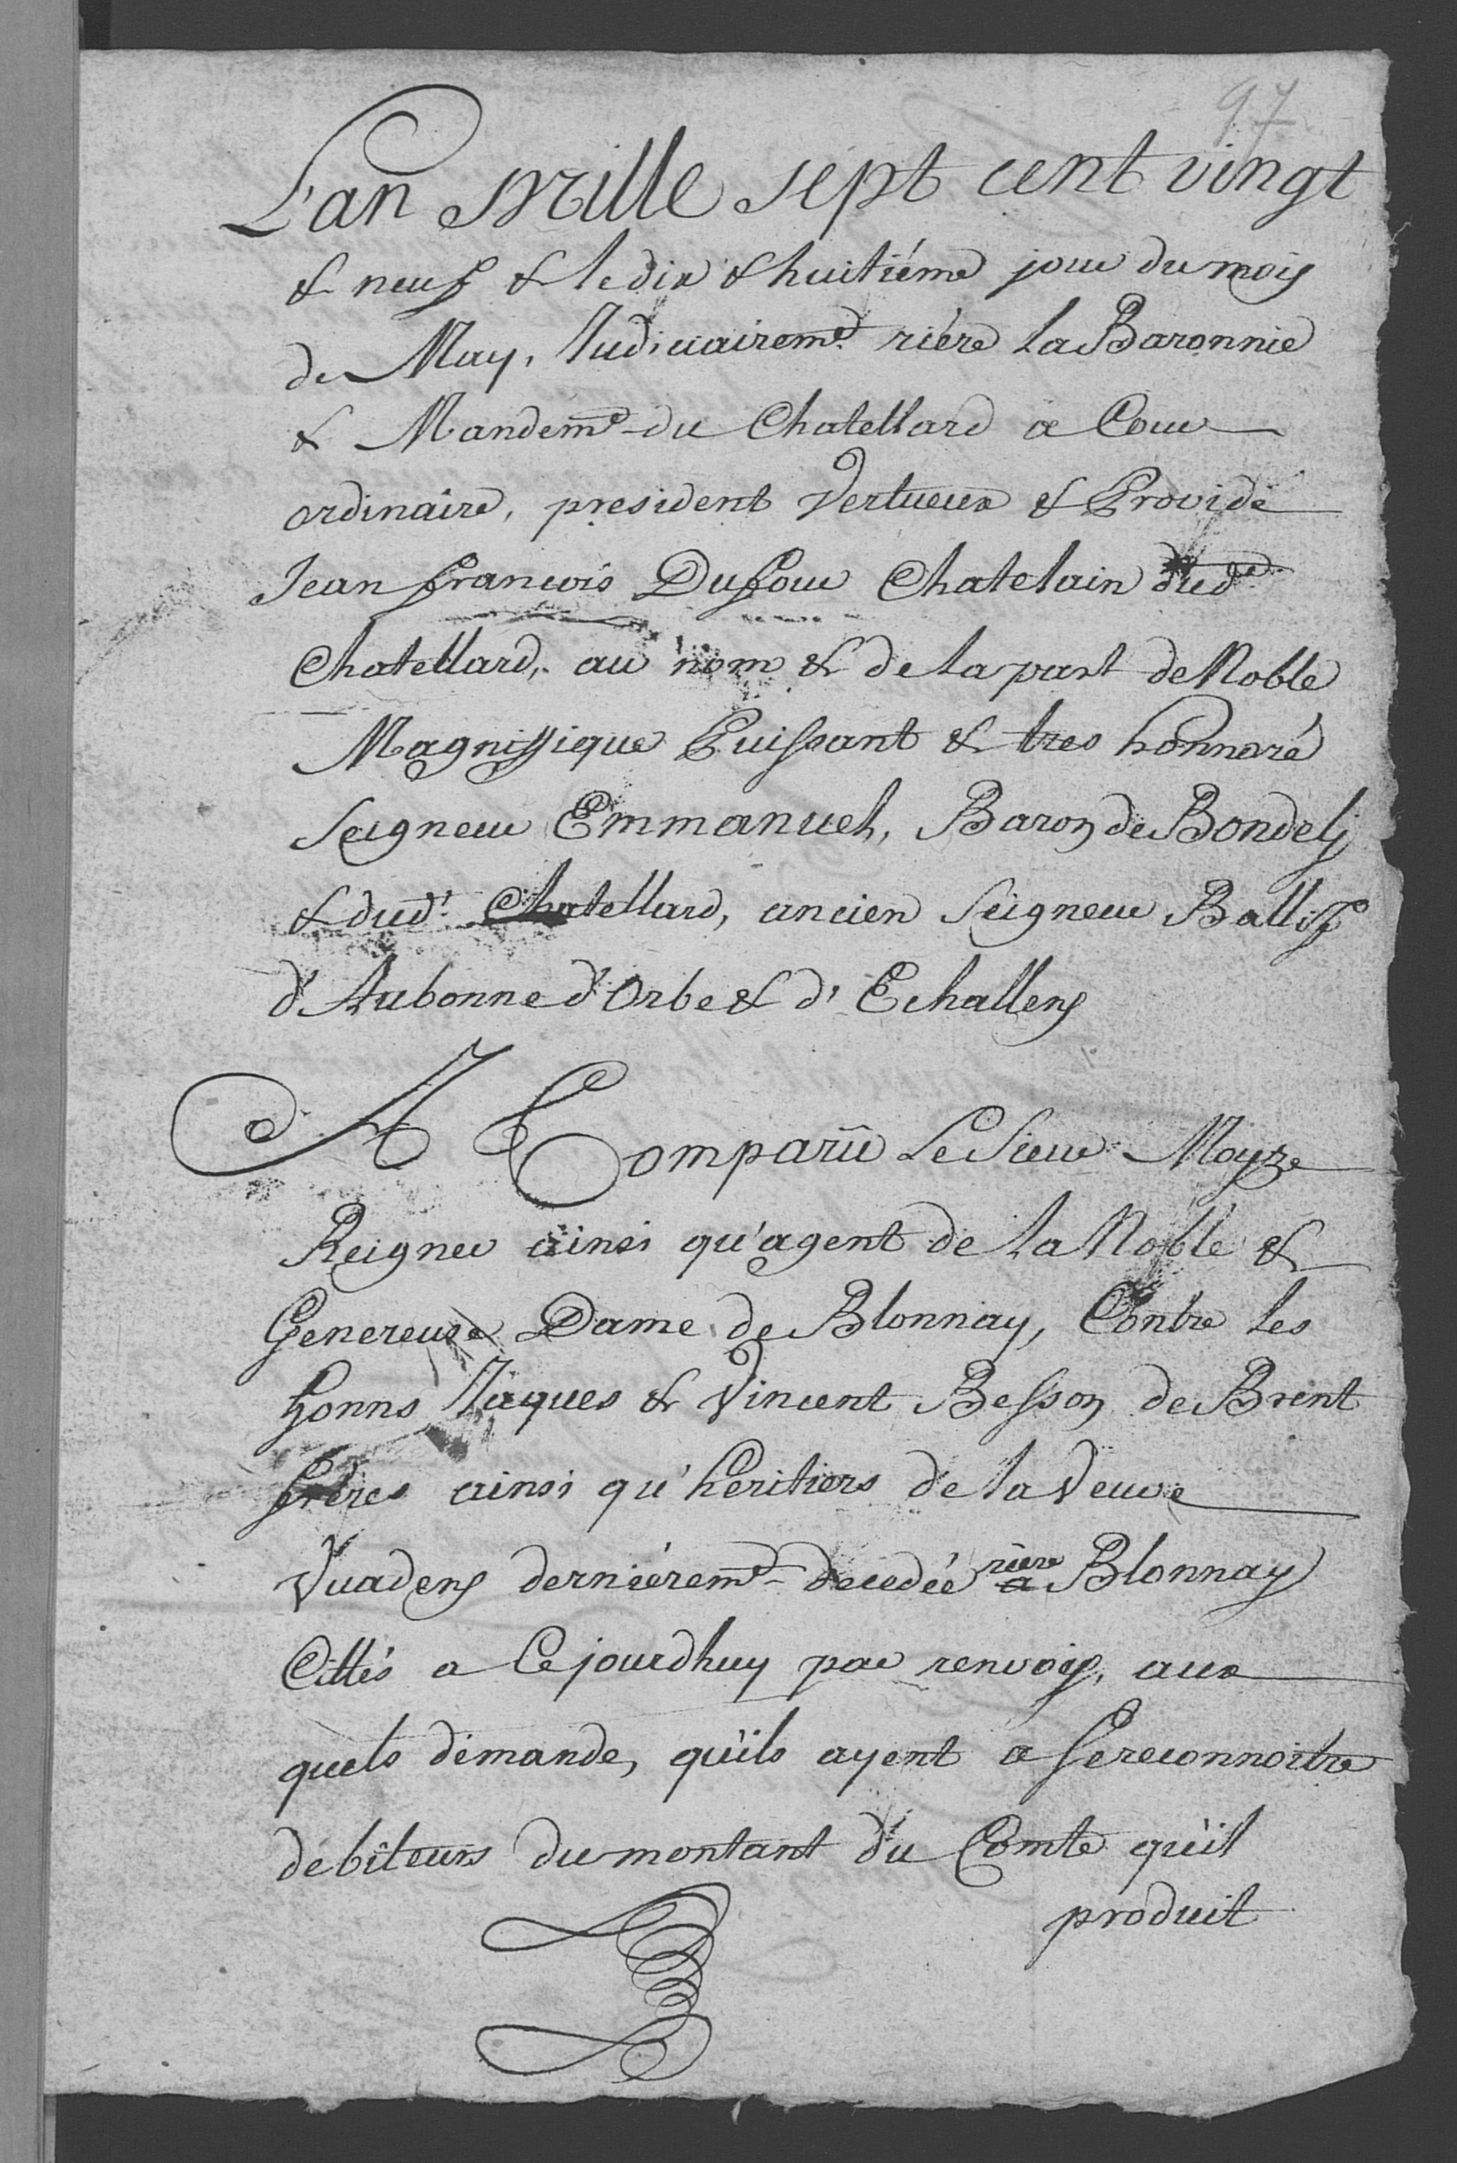 97
L'an Mille sept cent vingt
& neuf & le dix & huitiéme jour du mois
de May, Judiciairemt. riére la Baronnie
& Mandemt du Chatellard a Cour
ordinaire, president Vertueux & Provide
Jean francois Dufour Chatelain dudt
Chatellard, au nom & de la part de Noble
Magniffique Puissant & tres honnoré
Seigneur Emmanuel, Baron de Bondely
& dudt. Chatellard, ancien Seigneur Ballif
d'Aubonne d'Orbe & d'Echallens
A Comparû Le Sieur Moyze
Reigner ainsi qu'agent de La Noble &
Genereuse Dame de Blonnay, Contre les
honns Jaques & Vincent Besson de Brent
freres ainsi qu'heritiers de la Veuve
Vuadens derniéremt decedée riere Blonnay
Cittés a Cejourdhuy par renvoys, aux
quels demande, qu'ils ayent a se reconnoitre
debiteurs du montant du Comte qu'il
produit